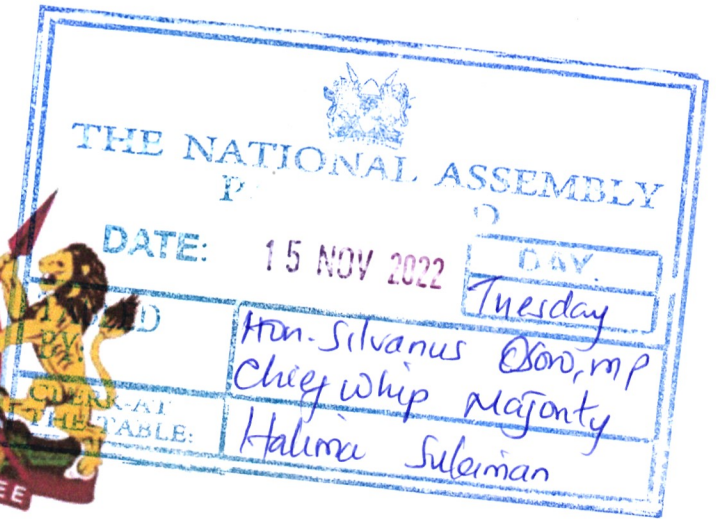 THE NATIONAL ASSEMBLY
DATE: 15 NOV 2022
DAY.
Tuesday
BY:
Hon. Silvanus Osoro, MP
Chief Whip Majority
CLERK-AT
THE-TABLE:
Halima Suleiman
EE